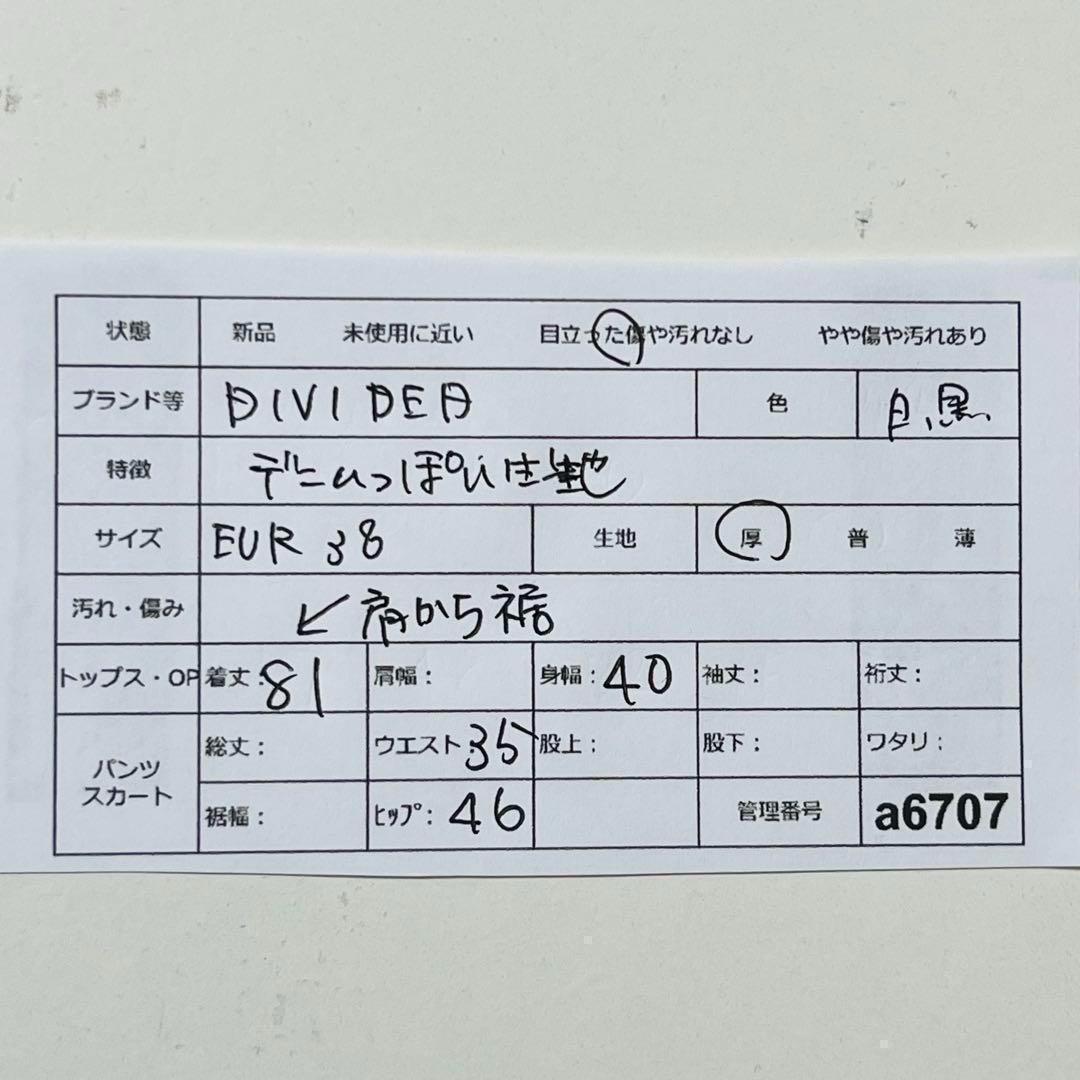 状態 新品 未使用に近い 目立った傷や汚れなし やや傷や汚れあり
ブランド等 DIVIDED 色 白、黒、
特徴 デニムっぽい生地
サイズ EUR 38 生地 厚 普 薄
汚れ・傷み ↙ 肩から裾
トップス・OP 着丈:81 肩幅: 身幅:40 袖丈: 裄丈:
パンツ スカート 総丈: ウエスト:35 股上: 股下: ワタリ:
裾幅: ヒップ:46 管理番号 a6707